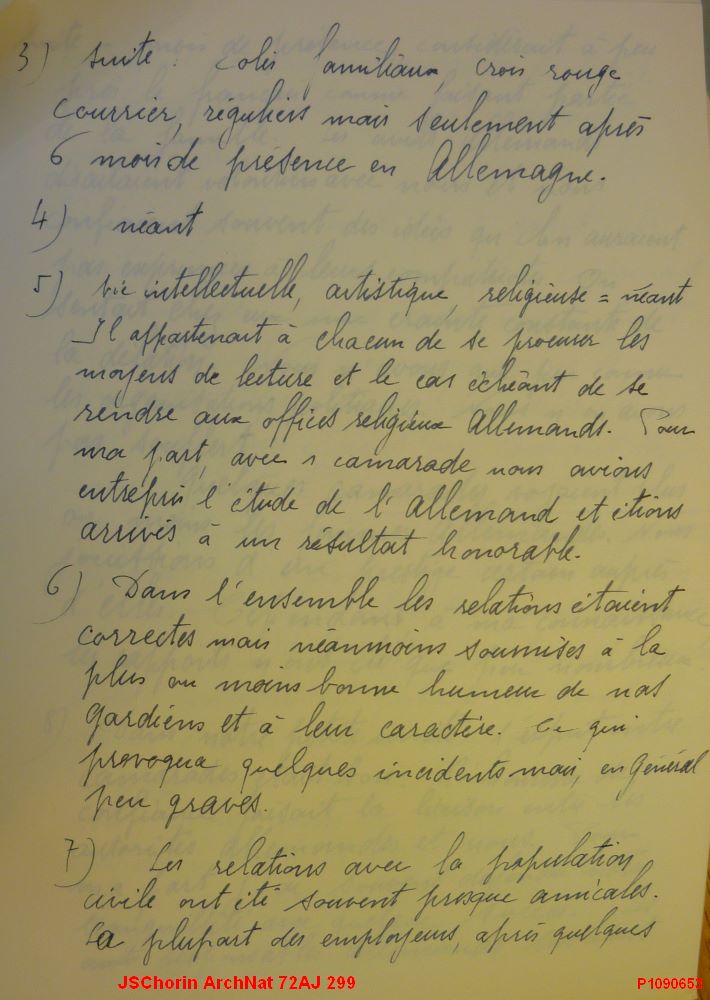 3) suite : Colis familiaux, crois rouge
courrier, réguliers mais seulement après
6 mois de présence en Allemagne.
4) néant
5) vie intellectuelle, artistique, religieuse = néant
Il appartenait à chacun de se procurer les
moyens de lecture et le cas échéant de se
rendre aux offices religieux Allemands. Pour
ma part, avec 1 camarade nous avions
entrepris l'étude de l'Allemand et étions
arrivés à un résultat honorable.
6) Dans l'ensemble les relations étaient
correctes mais néanmoins soumises à la
plus ou moins bonne humeur de nos
gardiens et à leur caractère. Ce qui
provoqua quelques incidents mais, en général
peu graves.
7) Les relations avec la population
civile ont été souvent presque amicales.
La plupart des employeurs, après quelques
JSChorin ArchNat 72AJ 299
P1090653